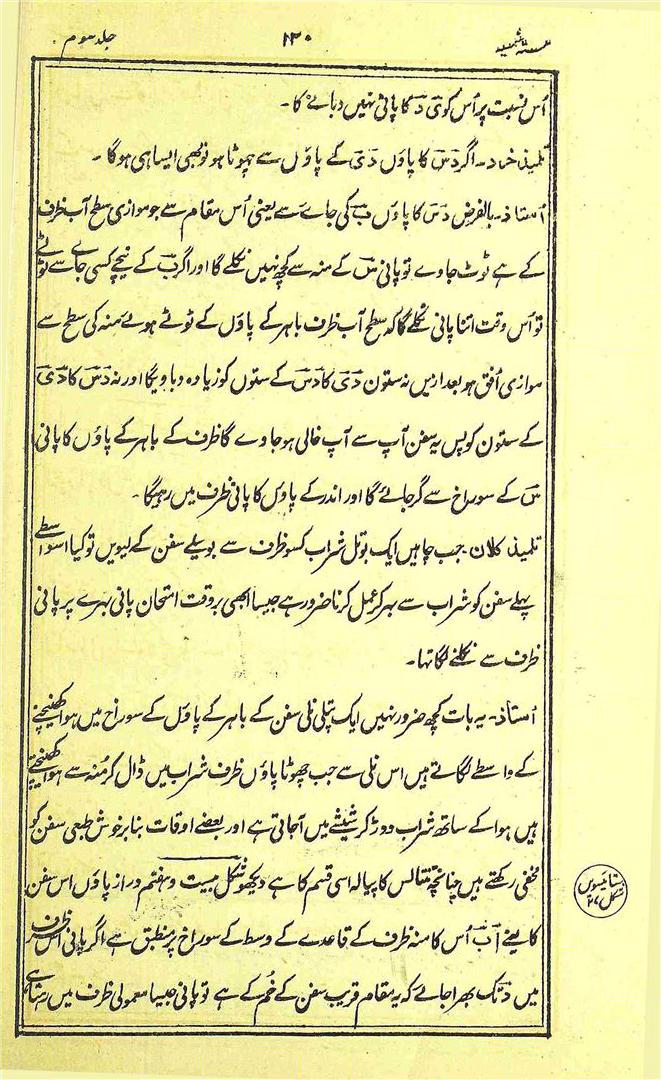 ستہ شمسیہ ۱۲۰ جلد سوم
اُس نسبت پر اُس کو دَیَ دَ کا پانی نہیں دبائے گا۔
تلمیذ خرد۔ اگر دَسَ کا پاوٗں دَیَ کے پاوٗں سے چھوٹا ہو تو بھی ایسا ہی ہوگا۔
اُستاذ۔ بالفرض دَسَ کا پاوٗں بَ کی جاے سے یعنی اُس مقام سے جو موازی سطح آب ظرف
کے ہے ٹوٹ جاوے تو پانی سَ کے منہ سے کچھ نہیں نکلے گا اور اگر بَ کے نیچے کسی جاے سے ٹوٹے
تو اُس وقت اتنا پانی نکلے گا کہ سطح آب ظرف باہر کے پاوٗں کے ٹوٹے ہوئے منہ کی سطح سے
موازی اُفق ہو بعد ازیں نہ ستون دَیَ کا دَسَ کے ستون کو زیادہ دباویگا اور نہ دَسَ کا دَیَ
کے ستون کو پس یہ سفن آپ سے آپ خالی ہو جاوے گا ظرف کے باہر کے پاوٗں کا پانی
سَ کے سوراخ سے گر جائے گا اور اندر کے پاوٗں کا پانی ظرف میں رہیگا۔
تلمیذ کلان۔ جب چاہیں ایک بوتل شراب کسو ظرف سے بوسیلے سفن کے لیویں تو کیا اسواسطے
پہلے سفن کو شراب سے بہر کر عمل کرنا ضرور ہے جیسا ابھی بروقت امتحان پانی بہرے پر پانی
ظرف سے نکلنے لگا تہا۔
اُستاذ۔ یہ بات کچھ ضرور نہیں ایک پتلی نلی سفن کے باہر کے پاوٗں کے سوراخ میں ہوا کھینچنے
کے واسطے لگاتے ہیں اس نلی سے جب چھوٹا پاوٗں ظرف شراب میں ڈال کر مُنہ سے ہوا کھینچتے
ہیں ہوا کے ساتھ شراب دوڑ کر شیشے میں آجاتی ہے اور بعضے اوقات بنا بر خوش طبعی سفن کو
مخفی رکھتے ہیں چنانچہ تنتالس کا پیالہ اسی قسم کا ہے دیکھو شکل بیست و ہفتم دراز پاوٗں اس سفن
کا یعنے آبَ اُس کا منہ ظرف کے قاعدے کے وسط کے سوراخ پر منطبق ہے اگر پانی اس ظرف
میں دَ تک بھرا جائے کہ یہ مقام قریب سفن کے خُم کے ہے تو پانی جیسا معمولی ظرف میں رہتا ہے
ستائیسویں
شکل ۲۷